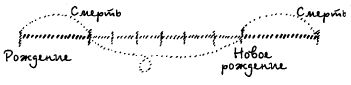 Смерть Смерть
Рождение Новое
рождение